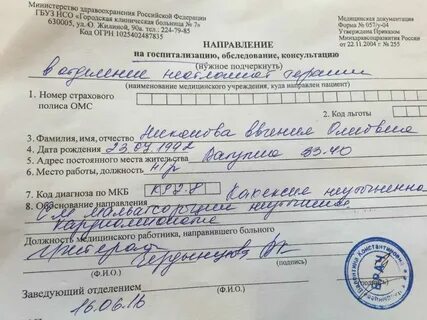 Министерство здравоохранения Российской Федерации
ГБУЗ НСО «Городская клиническая больница № 7»
630005, ул. Ю. Жилиной, 90а. тел.: 224-79-85
Код ОГРН 1025402487815
Медицинская документация
Форма № 057/у-04
Утверждена Приказом
Минздравсоцразвития России
от 22.11.2004 г. № 255
НАПРАВЛЕНИЕ
на госпитализацию, обследование, консультацию
(нужное подчеркнуть)
в отделение неотложной терапии
(наименование медицинского учреждения, куда направлен пациент)
1. Номер страхового
полиса ОМС
2. Код льготы
3. Фамилия, имя, отчество Евгения Олеговна
4. Дата рождения 23.07.1992
5. Адрес постоянного места жительства 33-40
6. Место работы, должность н/р
7. Код диагноза по МКБ K92.8 Кахексия неуточненная
8. Обоснование направления
С-м мальабсорбции неуточн
Кардиомиопатия
Должность медицинского работника, направившего больного
(Ф.И.О.) (подпись)
Заведующий отделением
16.06.16
(Ф.И.О.) (подпись)
ВРАЧ
Валентин Константинович